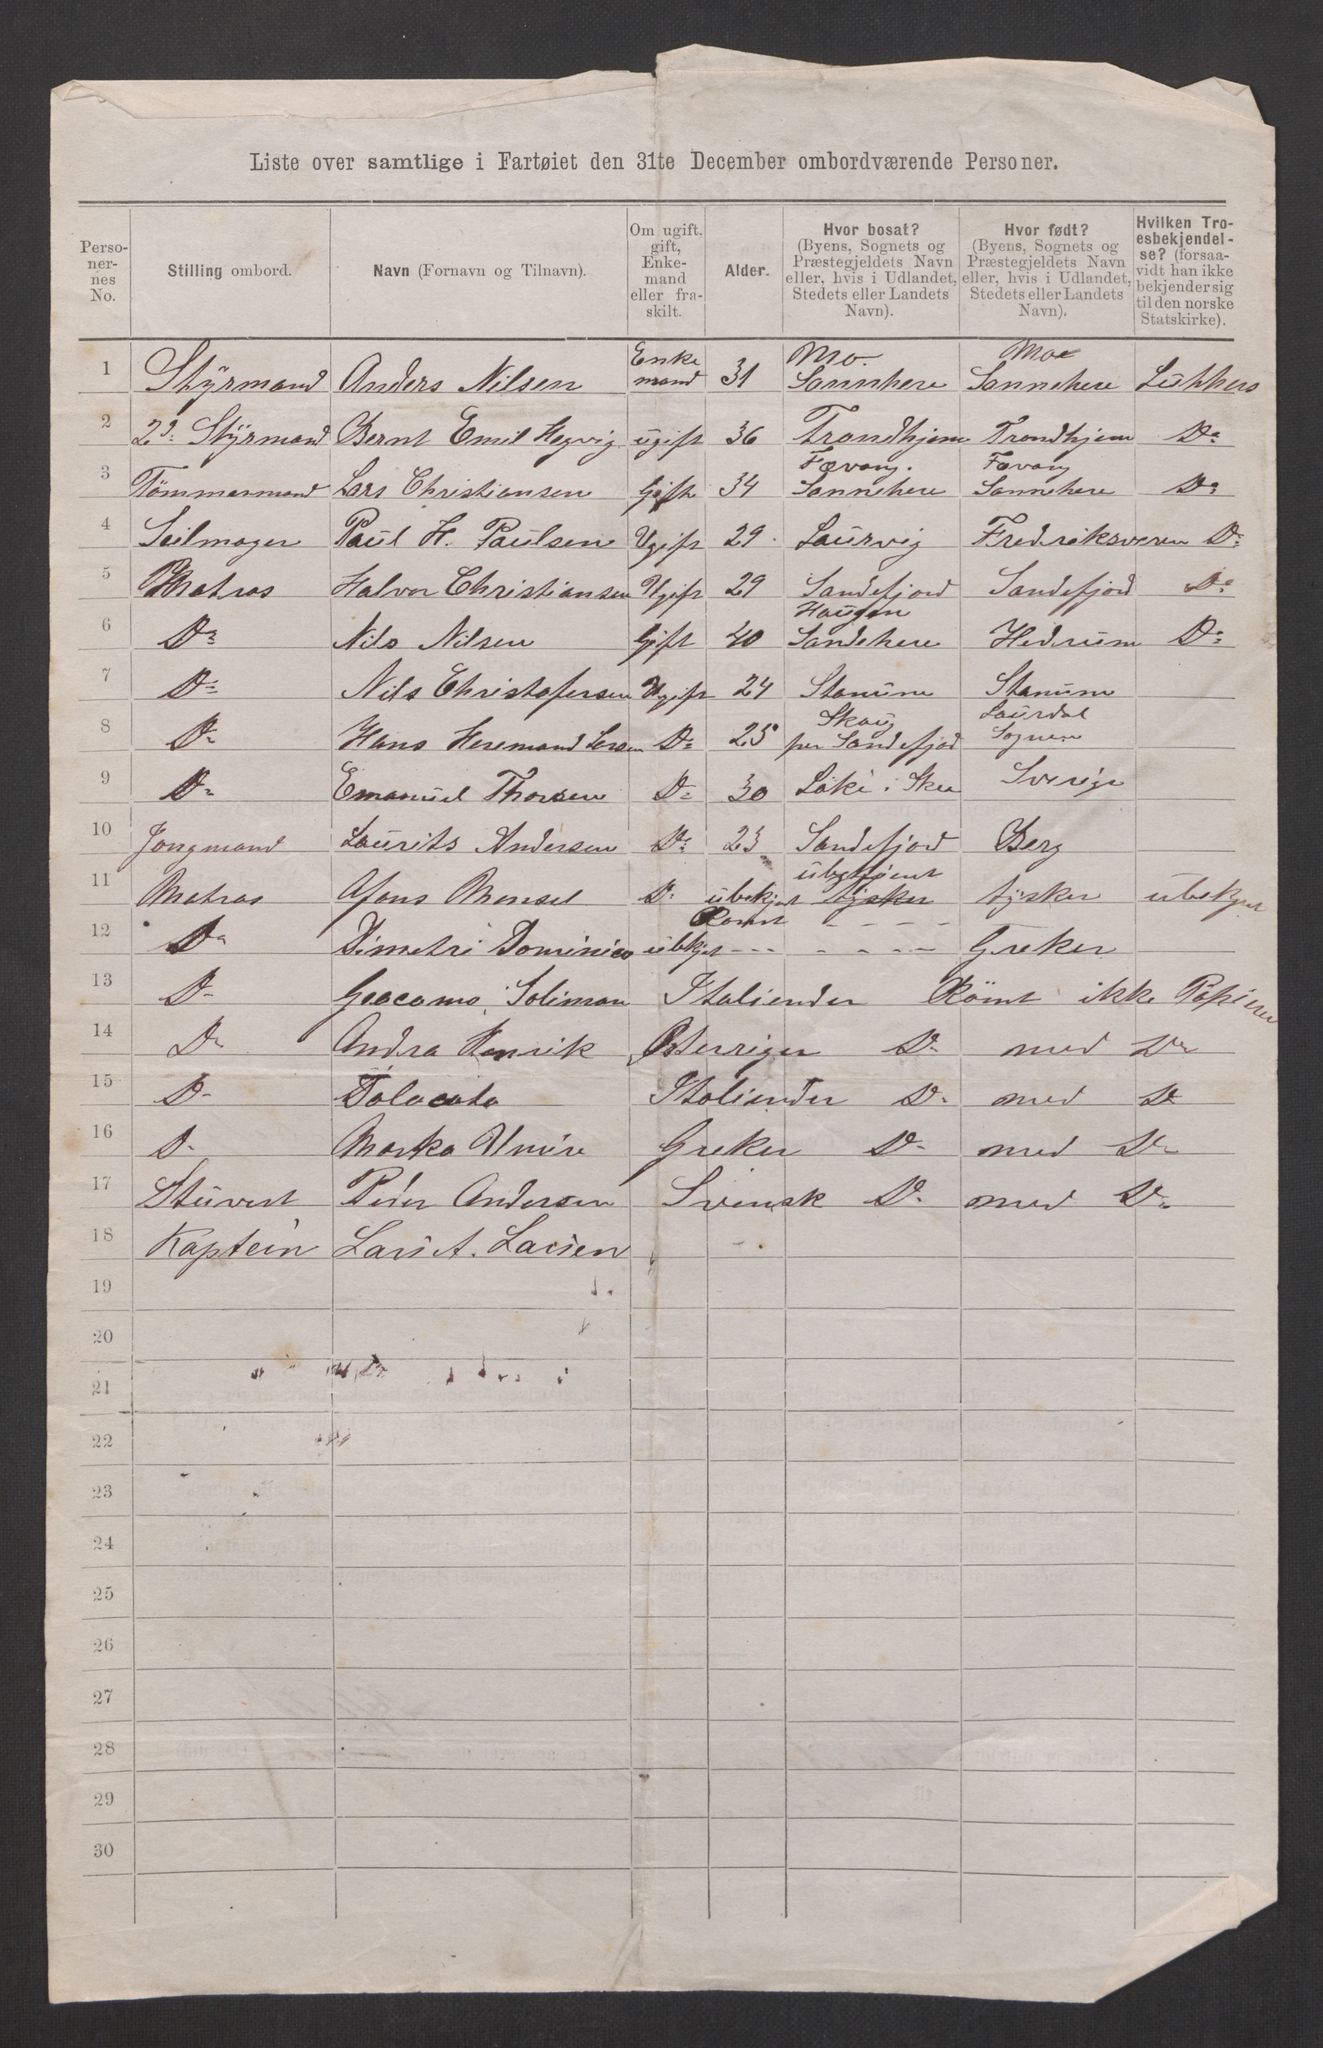 Liste over samtlige i Fartøiet den 31te December ombordværende Personer.
Perso-
ner-
nes
No.
Stilling ombord.
Navn (Fornavn og Tilnavn).
Om ugift,
gift,
Enke-
mand
eller fra-
skilt.
Alder.
Hvor bosat?
(Byens, Sognets og
Præstegjeldets Navn
eller, hvis i Udlandet,
Stedets eller Landets
Navn).
Hvor født?
(Byens, Sognets og
Præstegjeldets Navn
eller, hvis i Udlandet,
Stedets eller Landets
Navn).
Hvilken Tro-
esbekjendel-
se? (forsaa-
vidt han ikke
bekjender sig
til den norske
Statskirke).
1 Styrmand Anders Nilsen Enke mand 31 Mo. Sannhere Moe Sannehere
2 2d: Styrmand Bernt Emil Hegvig ugift 36 Trondhjem Trondhjem Do
3 Tömmermand Lars Christiansen Gift 34 Favang. Sannehere Favang Sannehere Do
4 Seilmager Paul H. Paulsen Ugift 29 Laurvig Fredriksveren Do
5 Matros Halvor Christiansen Ugift 29 Sandefjord Sandefjord Do
6 Do Nils Nilsen Gift 40 Haugen Sandehere Hederum Do
7 Do Nils Christofersen Ugift 24 Stanum Stanum
8 Do Hans Heremand Larsen Do 25 Skaug per Sandefjod Laurdal Sognen
9 Do Emanuel Thorsen Do 30 i Skee Sverige
10 Jongmand Laurits Andersen Do 23 Sandefjord Berg
11 Matros Afons Mensel Do ubekjent tysker tysker ubekjent
12 Do Dimetri Dominico ubekjet Römt - - - Greker
13 Do Geacomo Soliman Italiender Römt ikke Papirer
14 Do Andra Henrik Österriger Do med Do
15 Do Tolacato Italiender Do med Do
16 Do Marko Greker Do med Do
17 Stuvert Peder Andersen Svensk Do med Do
18 Kaptein Lars A. Larsen
19
20
21
22
23
24
25
26
27
28
29
30